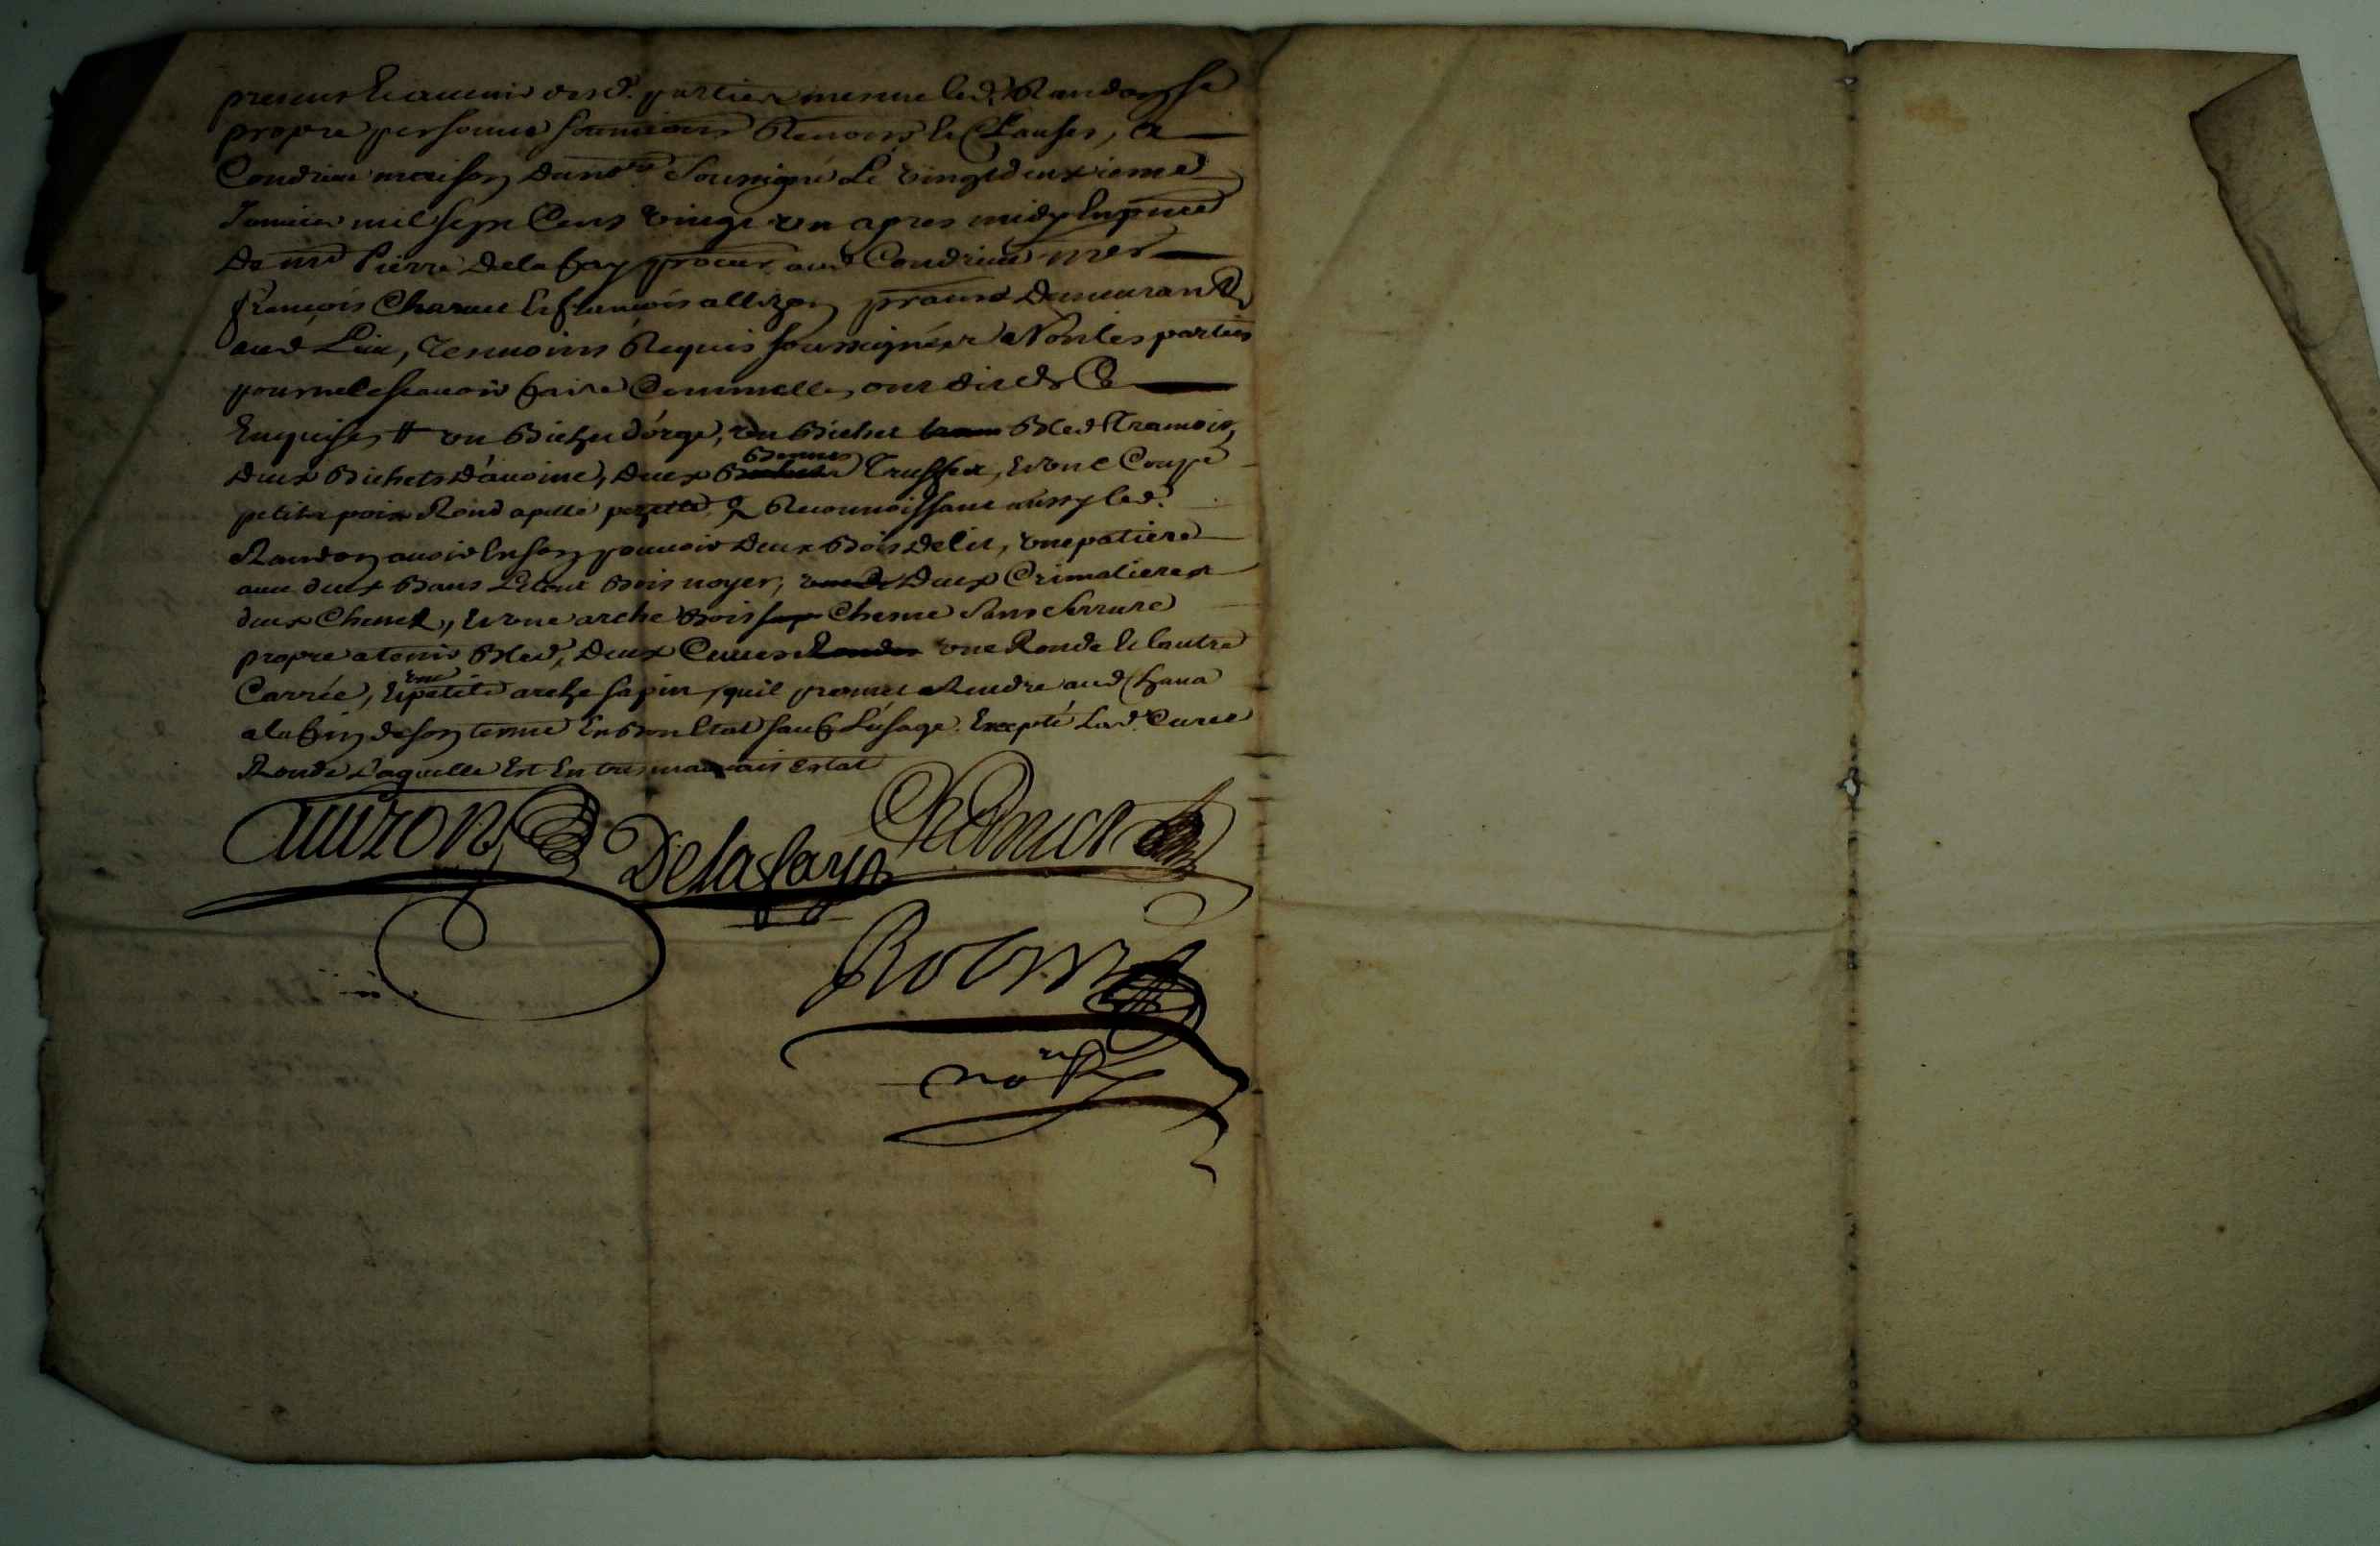 present et auenir desd. parties mesme led. Randon sa
propre personne soumissions Renons et Clauses, a
Condrieu maison du nore. soussigné Le vingtdeuxieme
Januier mil sept Cens vingt vn apres midy En pnce
de me Pierre Delafay procur aud Condrieu mes
françois et françois allizon prauns demeurans
aud Lieu, temoins Requis soussignés Non les parties
pour ne le scauoir faire Comme elles ont dit de Ce
Enquises # vn Bichet d'orge, vn Bichet Bled Tramois,
deux Bichets d'auoine, deux Bennes Truffes, et vne Coupe
petits poix Rond apellé pezette, & Reconnoissant aussy led.
Randon auoir En son pouuoir deux Bois de lit, vne patiere
auec deux Bans Le tout Bois noyer, deux Crimalieres
deux Chenets, et vne arche Bois Chesne sans serrure
propre a tenir Bled, deux Cuues vne Ronde et lautre
Carrée, et vne petite arche sapin, quil promet Rendre aud
a la fin de son terme En Bon Etat sauf L'usage. Excepté Lad. Cuue
Ronde Laquelle Est En tres mauuais estat
Delafay
nore